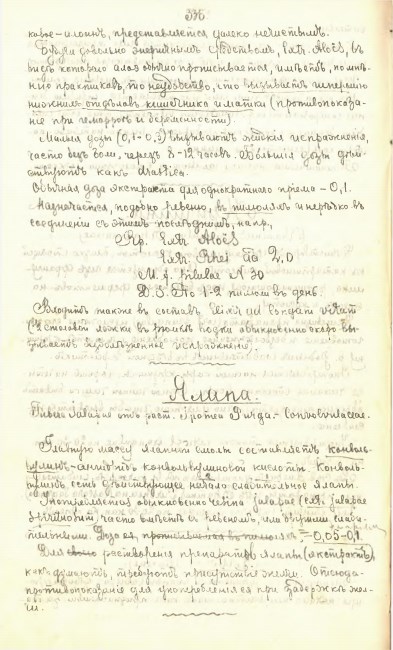 336
ковое-алоинъ, представляется далеко нечистымъ.
Будучи довольно энергичнымъ средствомъ, Extr. Aloës, въ
видѣ котораго алоэ обычно прописывается, имѣетъ, по мнѣ-
нію практиковъ, то неудобство, что вызываетъ гиперэмію
нижнихъ отдѣловъ кишечника и матки (противопоказа-
ніе при гемороѣ и беременности).
Малыя дозы (0,1-0,3) вызываютъ жидкія испражненія,
часто безъ боли, черезъ 8-12 часовъ. Большія дозы дѣй-
ствуютъ какъ drastica.
Обычная доза экстракта для однократнаго пріема - 0,1.
Назначается, подобно ревеню, въ пилюляхъ и нерѣдко въ
соединеніи съ этимъ послѣднимъ, напр.,
Rp. Extr. Aloës
Extr. Rhei aa 2,0
M. f. pilulae N 30
D.S. По 1-2 пилюли въ день.
Входитъ также въ составъ Elixir ad longam vitam
столовой ложки въ рюмкѣ водки обыкновенно вы-
зываетъ испражненіе.
Ялапа.
отъ раст. Ipomea Purga.- Convolvulaceae.
Главную массу ялапной смолы составляетъ конволь-
вулинъ-ангидритъ конвольвулиновой кислоты. Конволь-
вулинъ есть дѣйствующее начало слабительное ялапы.
Употребляется обыкновенно jalapae (extr. jalapae
часто вмѣстѣ съ ревенемъ, или другими слаби-
тельными. Доза -0,05-0,1.
Для растворенія препаратовъ ялапы (экстрактъ),
какъ думаютъ, требуютъ присутствіе желчи. Отсюда-
противопоказаніе для употребленія ея при задержкѣ жел-
чи.